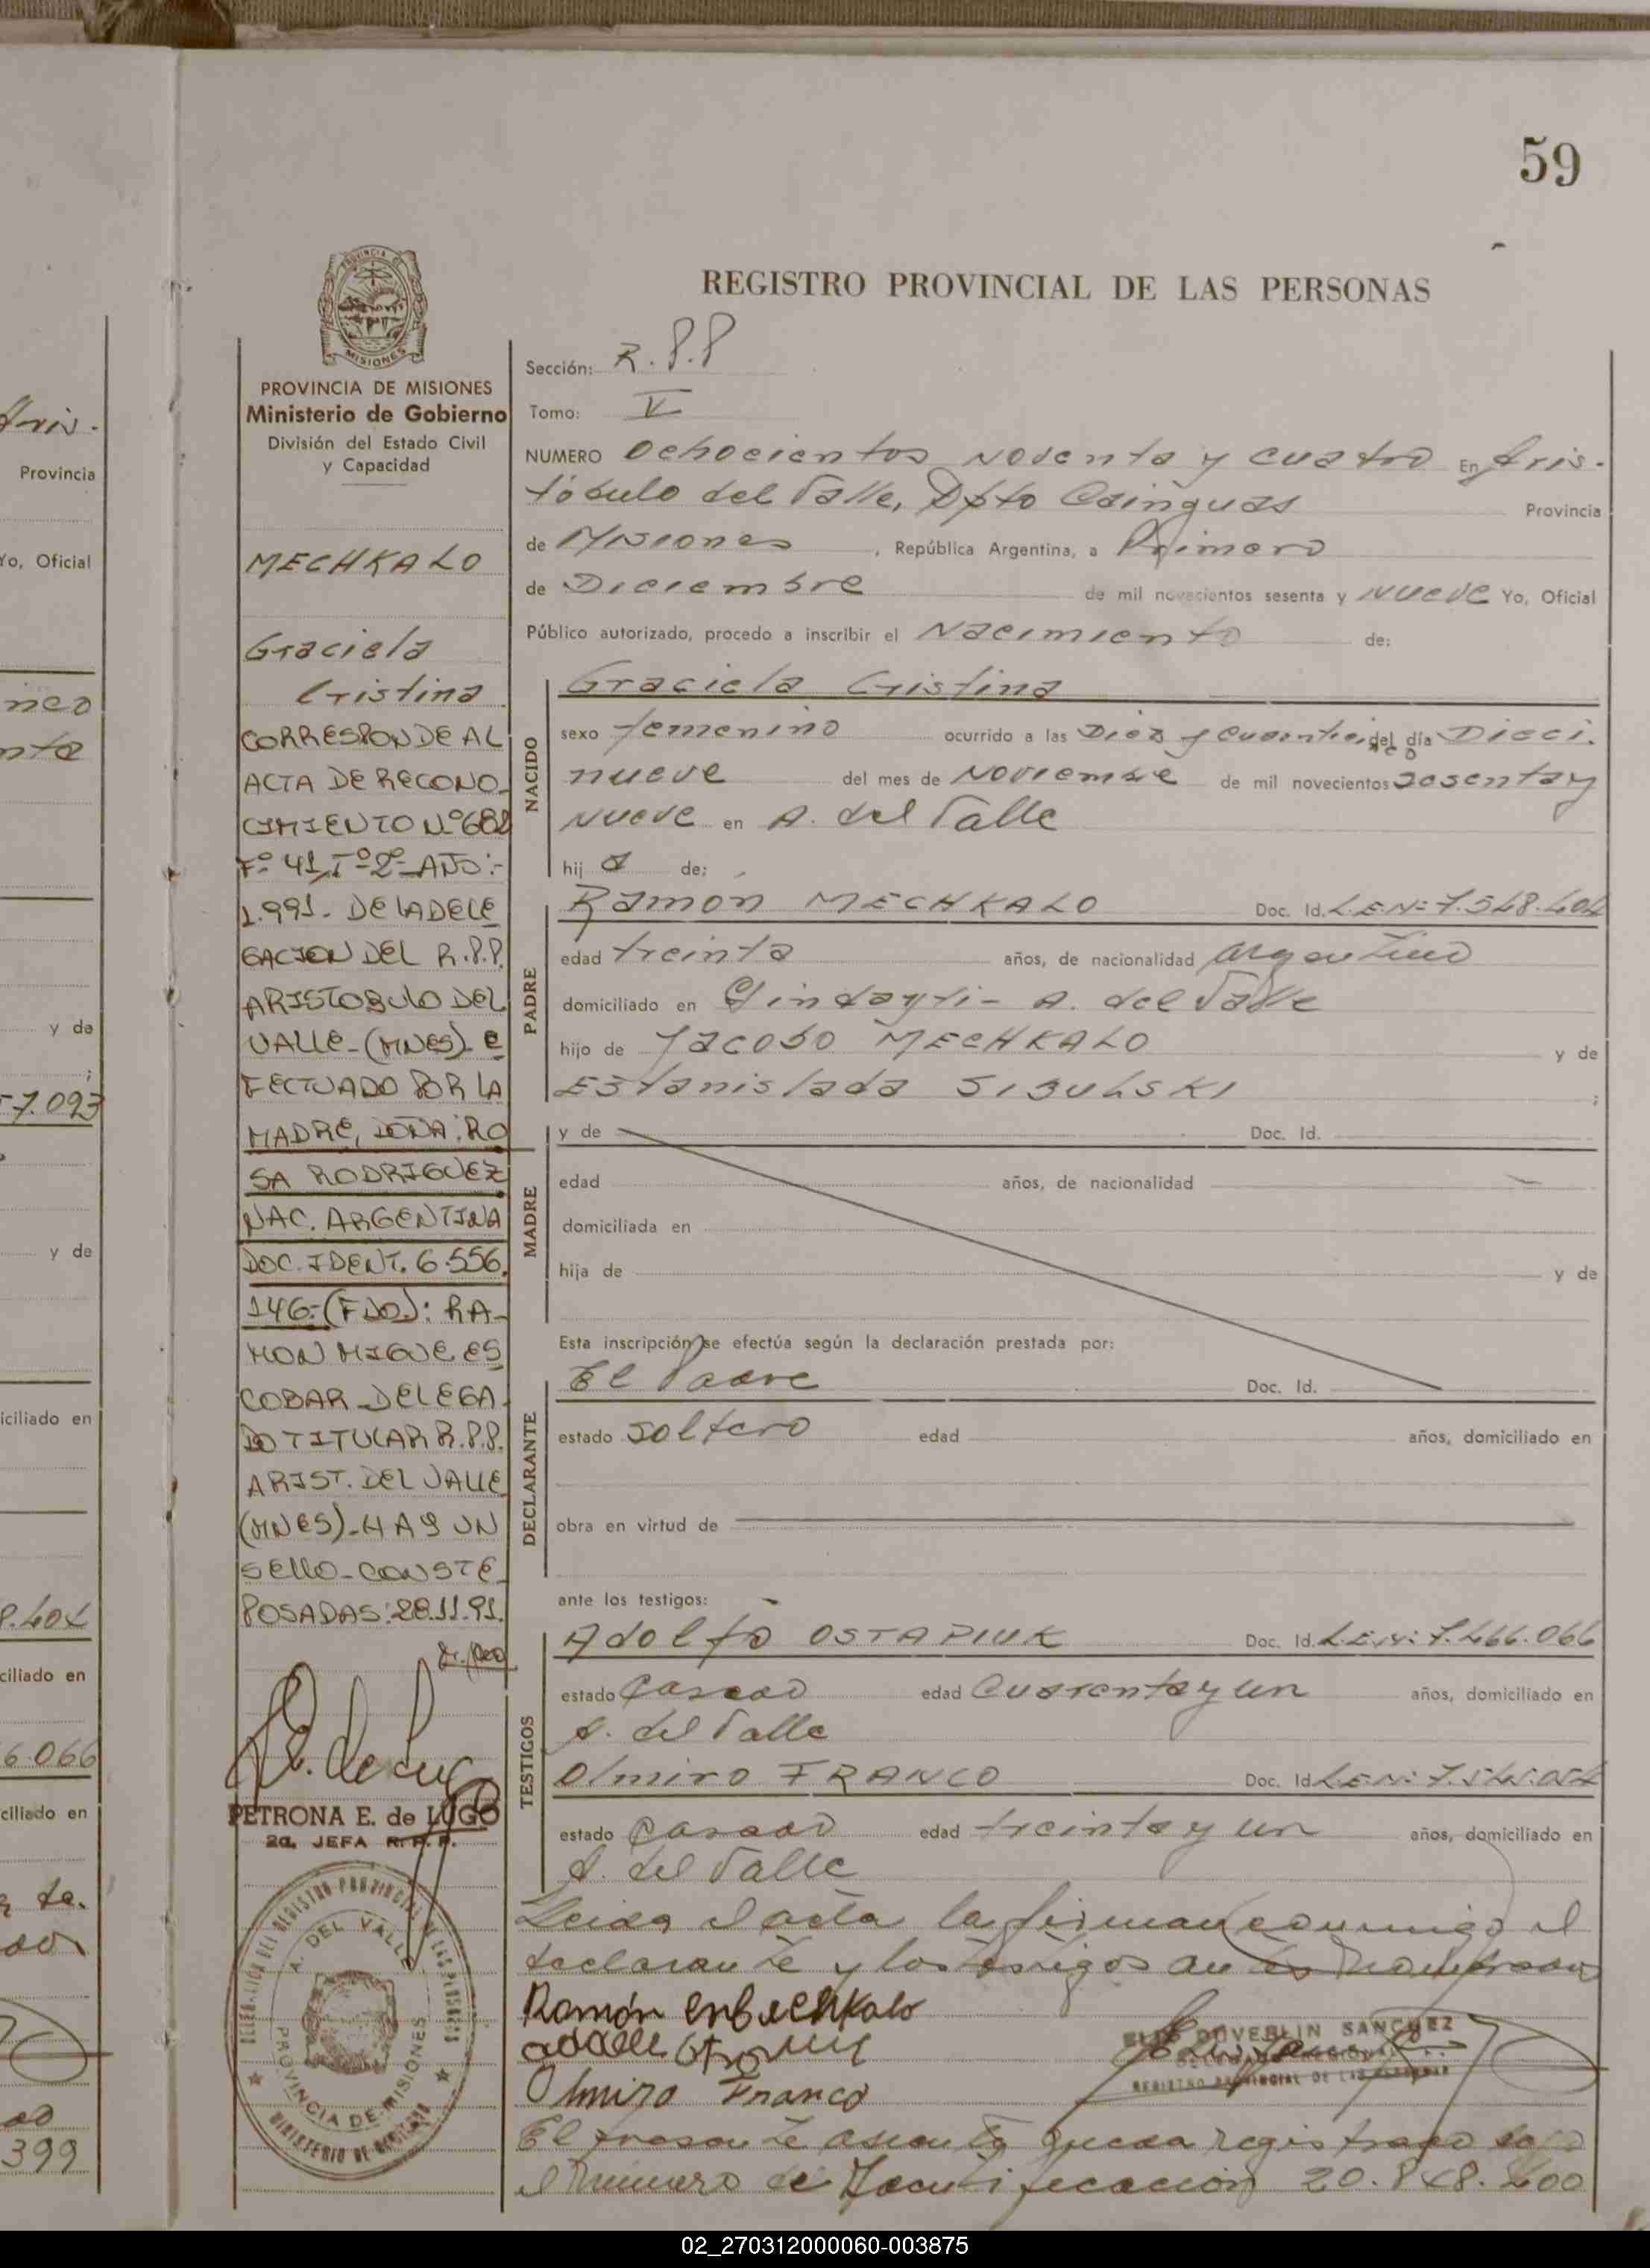 59
REGISTRO PROVINCIAL DE LAS PERSONAS
PROVINCIA DE MISIONES
MISIONES
PROVINCIA DE MISIONES
Ministerio de Gobierno
División del Estado Civil
y Capacidad
MECHKALO
Graciela
Cristina
CORRESPONDE AL
ACTA DE RECONO-
CIMIENTO Nº 682
Fº 41, Tº 2º AÑO:-
1.991. DE LA DELE
GACION DEL R.P.P.
ARISTOBULO DEL
VALLE-(MNES). E
FECTUADO POR LA
MADRE, DOÑA: RO
SA RODRIGUEZ
NAC. ARGENTINA
DOC. IDENT. 6.556.
146.-(FDO.): RA-
MON MIGUE ES
COBAR DELEGA
DO TITULAR R.P.P.
ARIST. DEL VALLE
(MNES)-HAY UN
SELLO-CONSTE
POSADAS: 28.11.91.
PETRONA E. de LUGO
2a. JEFA R.P.P.
DELEGACION DEL REGISTRO PROVINCIAL DE LAS PERSONAS
A. DEL VALLE
PROVINCIA DE MISIONES
MINISTERIO DE GOBIERNO
Sección: R.P.P
Tomo: V
NUMERO Ochocientos Noventa y cuatro En Aris-
tóbulo del Valle, Dpto Cainguas Provincia
de Misiones, República Argentina, a Primero
de Diciembre de mil novecientos sesenta y NUEVE Yo, Oficial
Público autorizado, procedo a inscribir el Nacimiento de:
NACIDO
Graciela Cristina
sexo femenino ocurrido a las Diez y Cuarenta del día Dieci-
nueve del mes de Noviembre de mil novecientos sesenta y
Nueve en A. del Valle
hija de:
PADRE
Ramón MECHKALO Doc. Id. L.E.Nº 7.548.404
edad treinta años, de nacionalidad argentino
domiciliado en A. del Valle
hijo de Jacobo MECHKALO y de
Estanislada SIBULSKI ;
MADRE
y de Doc. Id.
edad años, de nacionalidad
domiciliada en
hija de y de
Esta inscripción se efectúa según la declaración prestada por:
DECLARANTE
El Padre Doc. Id.
estado soltero edad años, domiciliado en
obra en virtud de
ante los testigos:
TESTIGOS
Adolfo OSTAPIUK Doc. Id. L.E.N: 7.466.066
estado Casado edad Cuarenta y un años, domiciliado en
A. del Valle
Olmiro FRANCO Doc. Id. L.E.N: 7.545.054
estado Casado edad treinta y un años, domiciliado en
A. del Valle
Leida el acta la firman conmigo el
declarante y los testigos antes nombrados
Ramón
Olmiro Franco
DUVERLIN SANCHEZ
DELEGADO REGIONAL
REGISTRO PROVINCIAL DE LAS PERSONAS
El presente asiento queda registrado bajo
el Número de Identificación 20.848.400
Aris-
Provincia
Yo, Oficial
nta
y de
;
7.093
y de
iciliado en
ciliado en
6.066
ciliado en
399
02_270312000060-003875